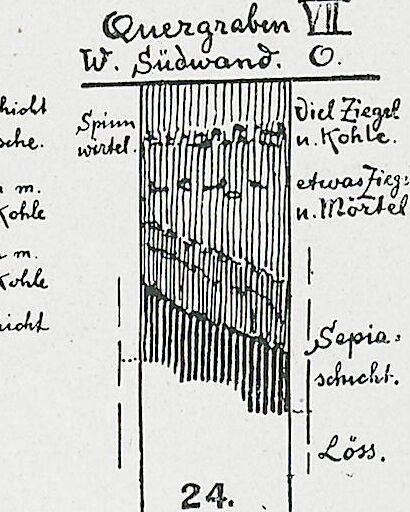 Quergraben VII
W. Südwand. O.
Spinn
wirtel.
Viel Ziegel
u. Kohle.
etwas Zieg:
u. Mörtel
hicht
sche.
m.
Kohle
m.
Kohle
hicht
Sepia-
schicht.
Löss.
24.